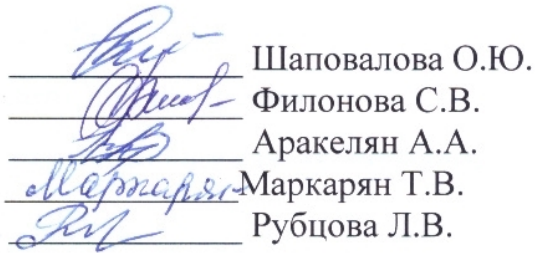 Шаповалова О.Ю.
Филонова С.В.
Аракелян А.А.
Маркарян Т.В.
Рубцова Л.В.